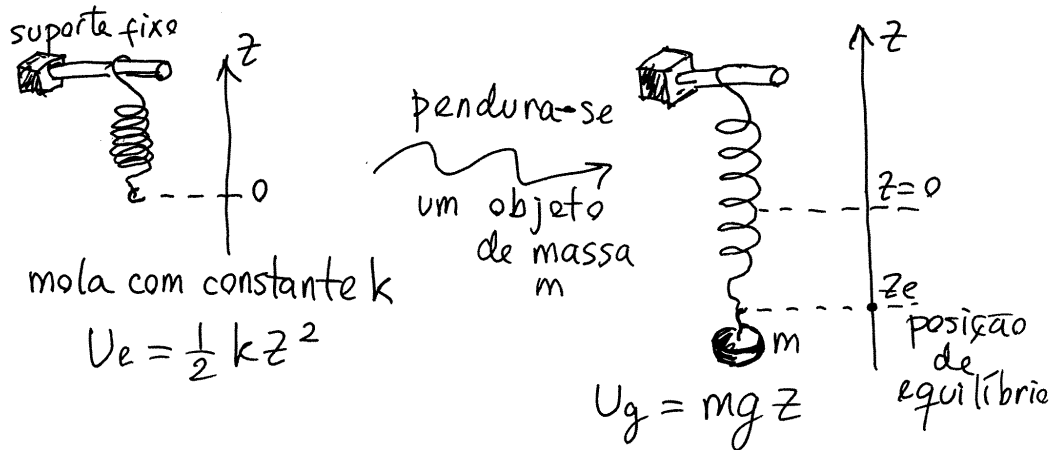 suporte fixo
z
0
mola com constante k
Ue = 1/2 k z²
pendura-se
um objeto
de massa
m
z
z = 0
ze
posição
de
equilíbrio
m
Ug = mg z